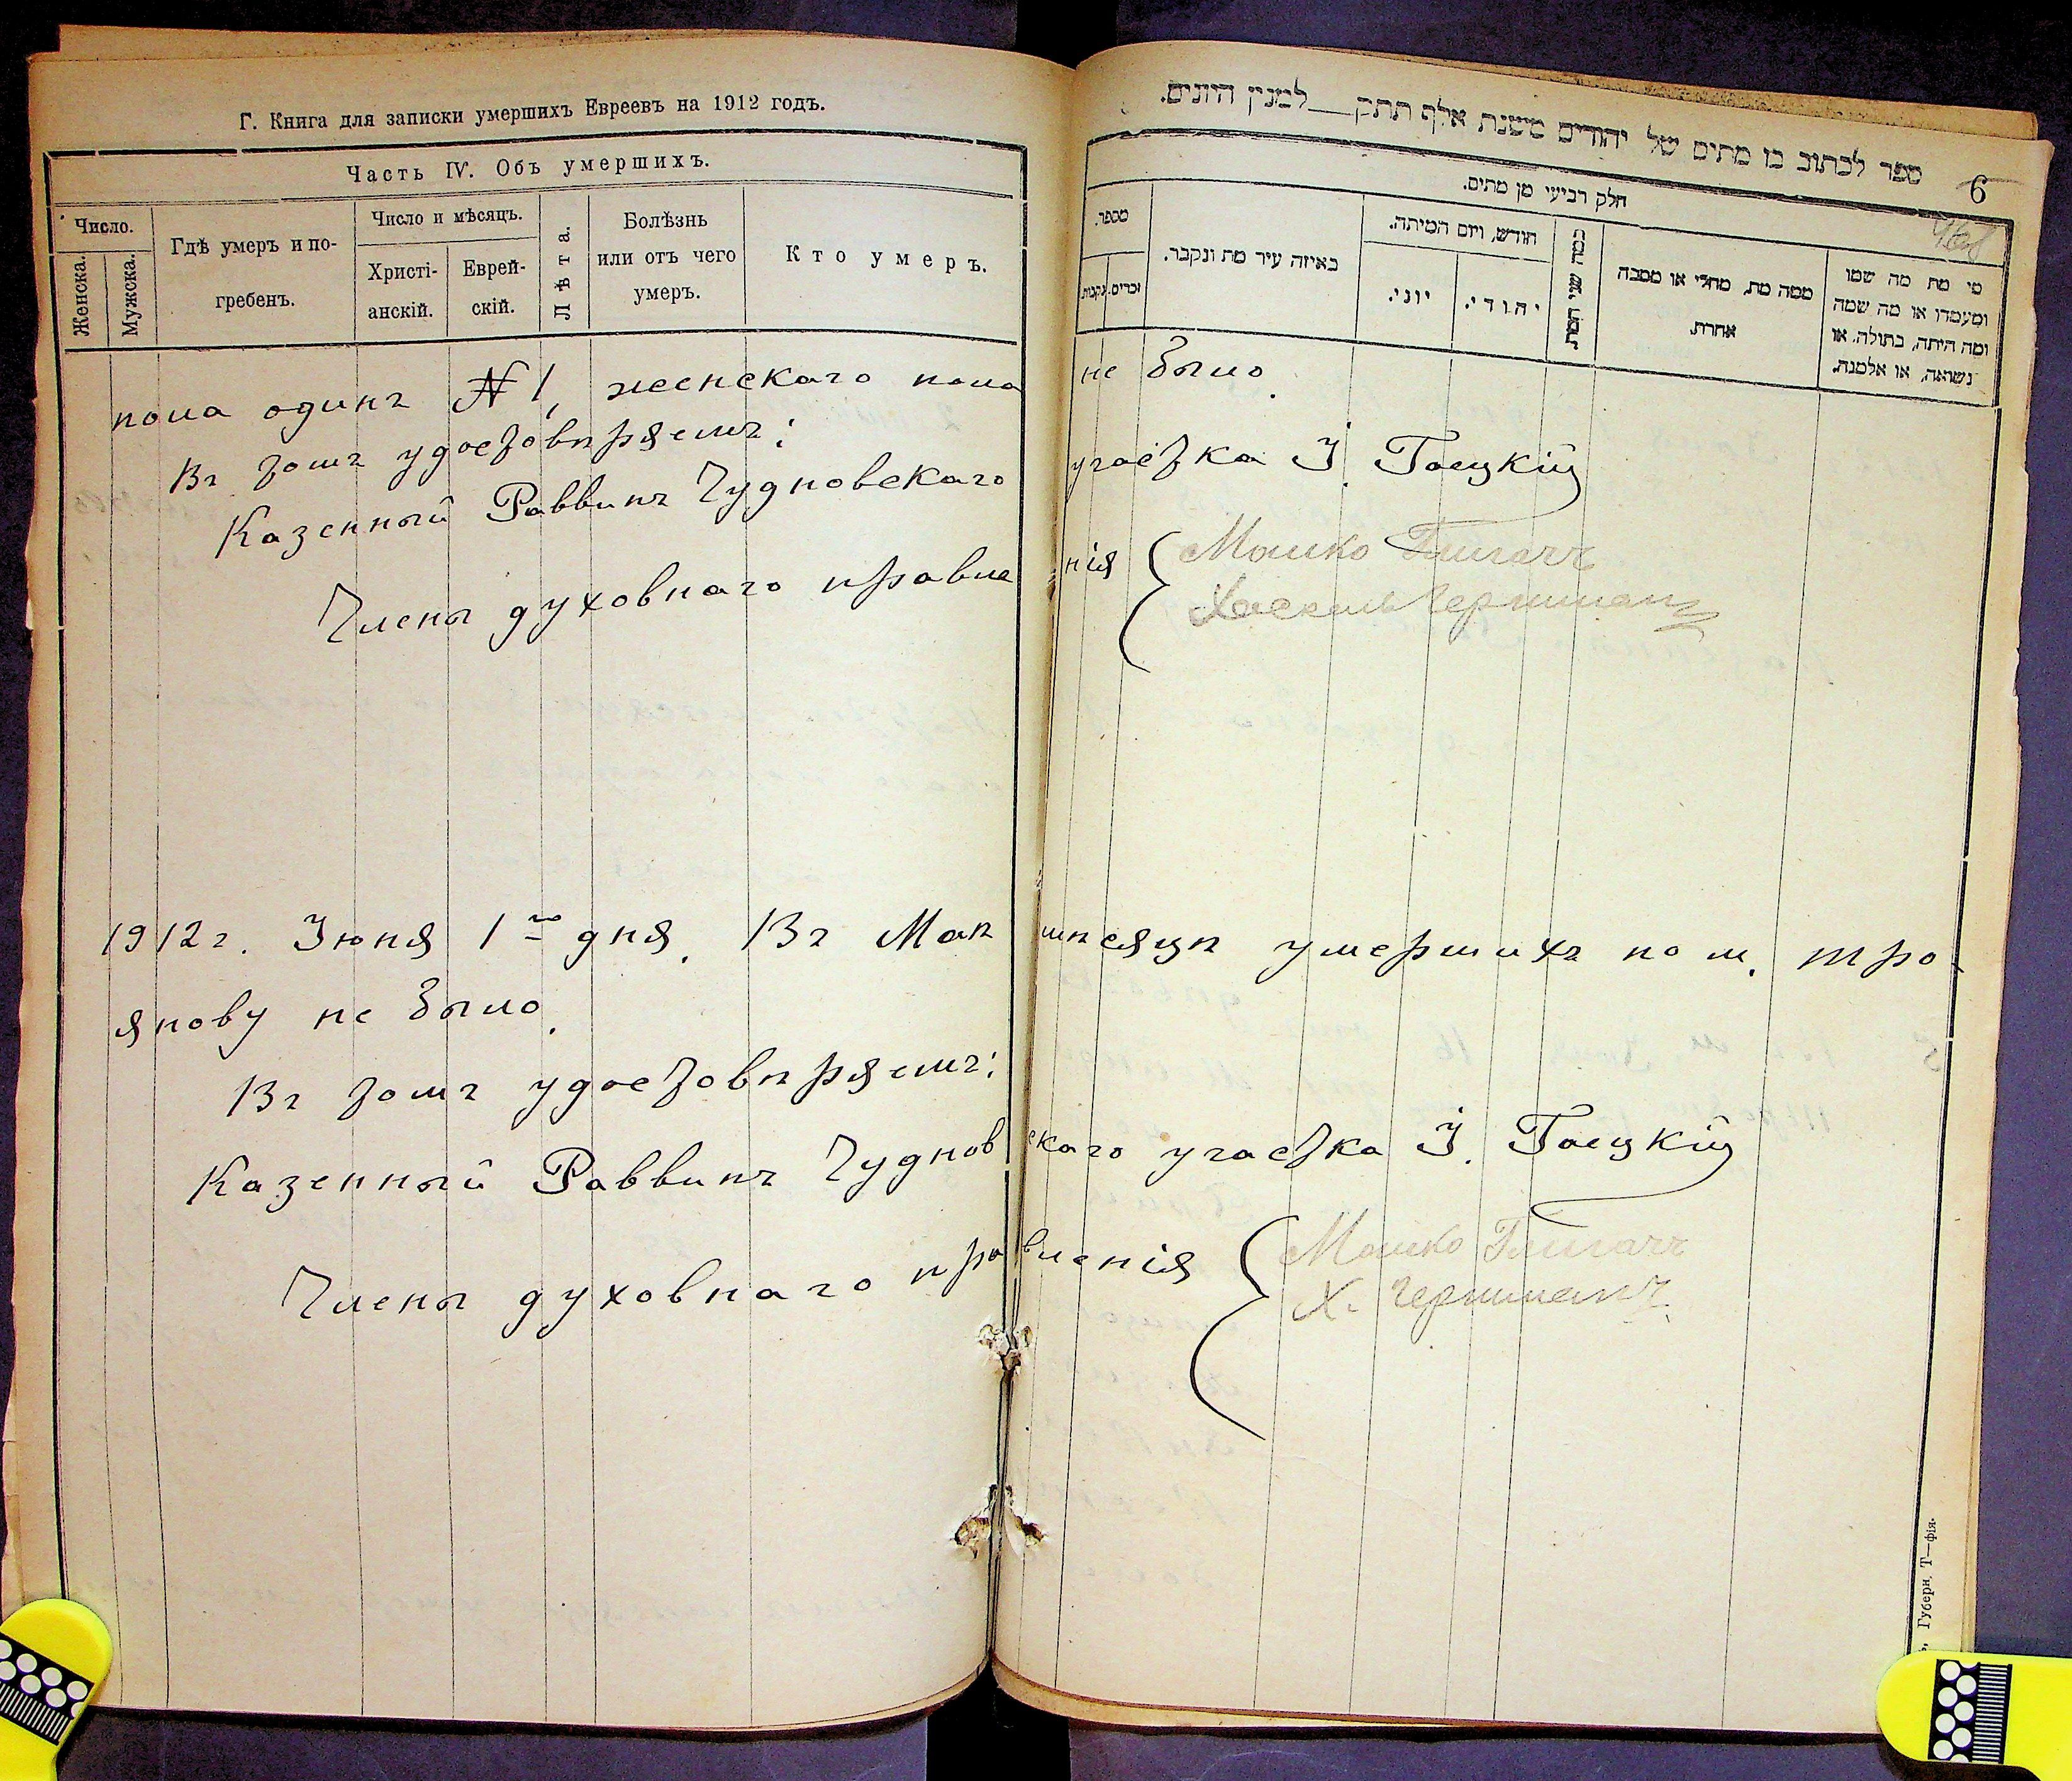 Г. Книга для записки умершихъ Евреевъ на 1912 годъ.
Часть IV. Объ умершихъ.
Число.
Женска.
Мужска.
Гдѣ умеръ и по-
гребенъ.
Число и мѣсяцъ.
Христі-
анскій.
Еврей-
скій.
Лѣта.
Болѣзнь
или отъ чего
умеръ.
Кто умеръ.
ספר לכתוב בו מתים של יהודים משנת אלף תתק__למנין היונים.
6
חלק רביעי מן מתים.
מספר.
נקבות.
זכרים.
באיזה עיר מת ונקבר.
חודש, ויום המיתה.
יוני.
יהודי.
כמה שני המת.
ממה מת, מחלי או מסבה
אחרת.
מי מת מה שמו
ומעמדו או מה שמה
ומה היתה, בתולה. או
נשואה, או אלמנת.
пола одинъ № 1, женскаго пола не было.
Въ томъ удостовѣряемъ:
Казенный Раввинъ Чудновскаго участка І. Гоецкій
Члены духовнаго правленія
Мошко
1912 г. Іюня 1го дня. Въ Маѣ мѣсяцѣ умершихъ по м. Тро-
янову не было.
Въ томъ удостовѣряемъ:
Казенный Раввинъ Чудновскаго участка І. Гоецкій
Члены духовнаго правленія
Мошко
Х.
Губерн. Т—фія.